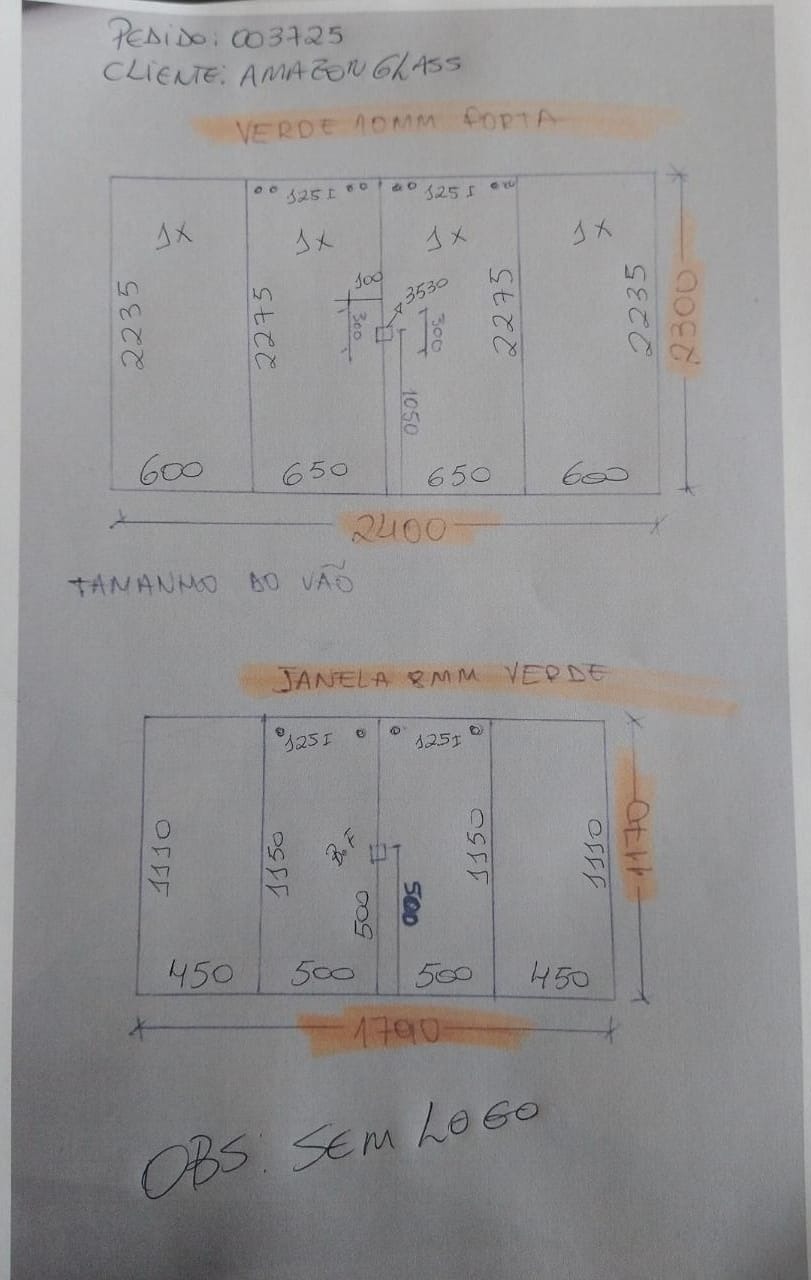 PEDIDO: 003725
CLIENTE: AMAZON GLASS
VERDE 10MM PORTA
125 I 125 I
1X 1X 1X 1X
2235 2275 100 3530 2275 2235 2300
300 300
1050
600 650 650 600
2400
TAMANHO DO VÃO
JANELA 8MM VERDE
125 I 125 I
1110 1150 1150 1110 1170
500 500
450 500 500 450
1790
OBS: SEM LOGO